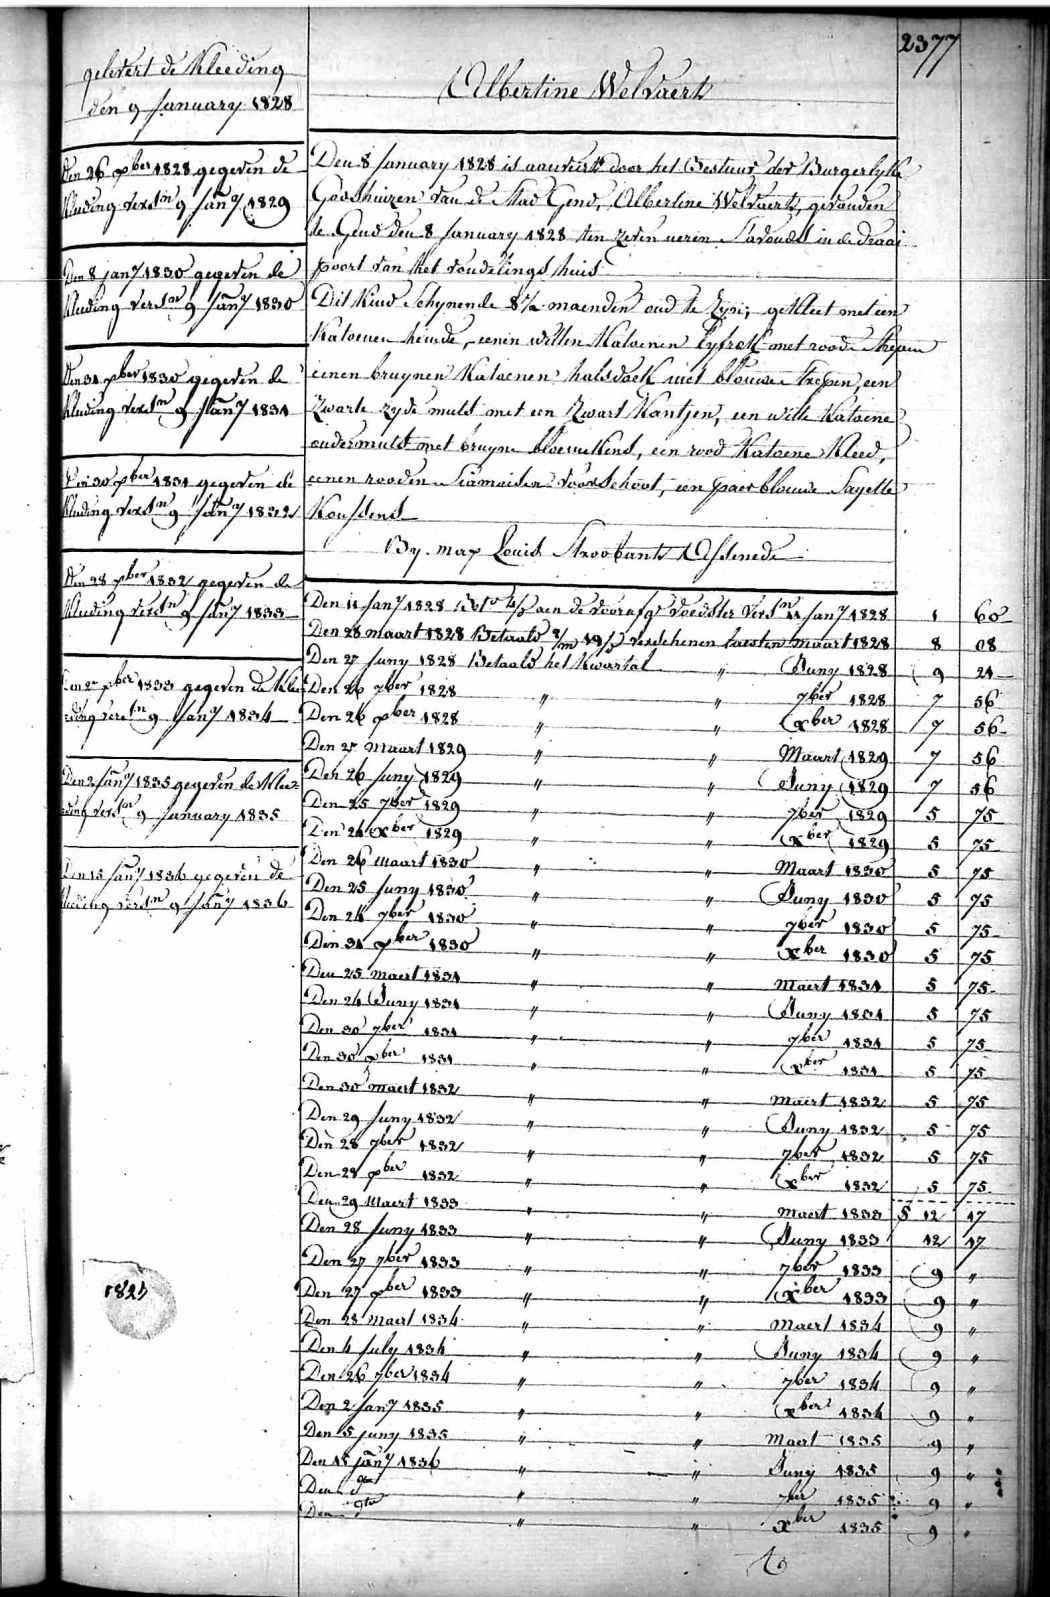 2377
gelevert de Kleeding
den 9 January 1828
Den 26 xber 1828 gegeven de
Kleeding versn 9 Jany 1829
Den 8 jany 1830 gegeven de
Kleeding versn 9 Jany 1830
Den 31 xber 1830 gegeven de
Kleeding versn 9 Jany 1831
Den 30 xber 1831 gegeven de
Kleeding versn 9 Jany 1832
Den 28 xber 1832 gegeven de
Kleeding versn 9 Jany 1833
xber 1833 gegeven de Klee
ding versn 9 Jany 1834
Den 2 Jany 1835 gegeven de Klee-
ding versn 9 January 1835
Den 15 Jany 1836 gegeven de
Kleeding versn 9 Jany 1836
1827
Albertine Welvaert
Den 8 January 1828 is aanveert door het Bestuur der Burgerlyke
Godshuizen van de Stad Gend, Albertine Welvaert, gevonden
te Gend den 8 January 1828 ten zeven ueren S'avonds in de Draai
poort van het vondelings huis
Dit Kind Schynende 8½ maenden oud te zyn; gekleet met een
Katoenen hemde, eenen witten Katoenen lyfrok met roode strepen
eenen bruynen Katoenen halsdoek met blouwe strepen, een
zwarte zyde muts met een zwart Kantjen, een witte Katoene
ondermuts met bruyne bloemekens, een rood Katoene Kleed,
eenen rooden Siamoisen voorschoot, een paer blouwe Sayette
Kousens
By map Louis Stroobants Assenede
Den 11 Jany 1828 aen de voorafge voedster versn 11 Jany 1828 1 60
Den 28 maart 1828 Betaald verschenen laesten maart 1828 8 08
Den 27 Juny 1828 Betaald het Kwartal " Juny 1828 9 24
Den 26 7ber 1828 " " 7ber 1828 7 56
Den 26 xber 1828 " " xber 1828 7 56
Den 27 maart 1829 " " Maart 1829 7 56
Den 26 Juny 1829 " " Juny 1829 7 56
Den 25 7ber 1829 " " 7ber 1829 5 75
Den 24 xber 1829 " " xber 1829 5 75
Den 26 maart 1830 " " Maart 1830 5 75
Den 25 Juny 1830 " " Juny 1830 5 75
Den 24 7ber 1830 " " 7ber 1830 5 75
Den 31 xber 1830 " " xber 1830 5 75
Den 25 maert 1831 " " Maert 1831 5 75
Den 24 Juny 1831 " " Juny 1831 5 75
Den 30 7ber 1831 " " 7ber 1831 5 75
Den 30 xber 1831 " " xber 1831 5 75
Den 30 maert 1832 " " maert 1832 5 75
Den 29 Juny 1832 " " Juny 1832 5 75
Den 28 7ber 1832 " " 7ber 1832 5 75
Den 28 xber 1832 " " xber 1832 5 75
Den 29 Maert 1833 " " Maert 1833 12 17
Den 28 Juny 1833 " " Juny 1833 12 17
Den 27 7ber 1833 " " 7ber 1833 9 "
Den 27 xber 1833 " " xber 1833 9 "
Den 28 maert 1834 " " Maert 1834 9 "
Den 4 July 1834 " " Juny 1834 9 "
Den 26 7ber 1834 " " 7ber 1834 9 "
Den 2 Jany 1835 " " xber 1834 9 "
Den 5 juny 1835 " " Maert 1835 9 "
Den 15 jany 1836 " " Juny 1835 9 "
Den dto " " 7ber 1835 9 "
Den dto " " xber 1835 9 "